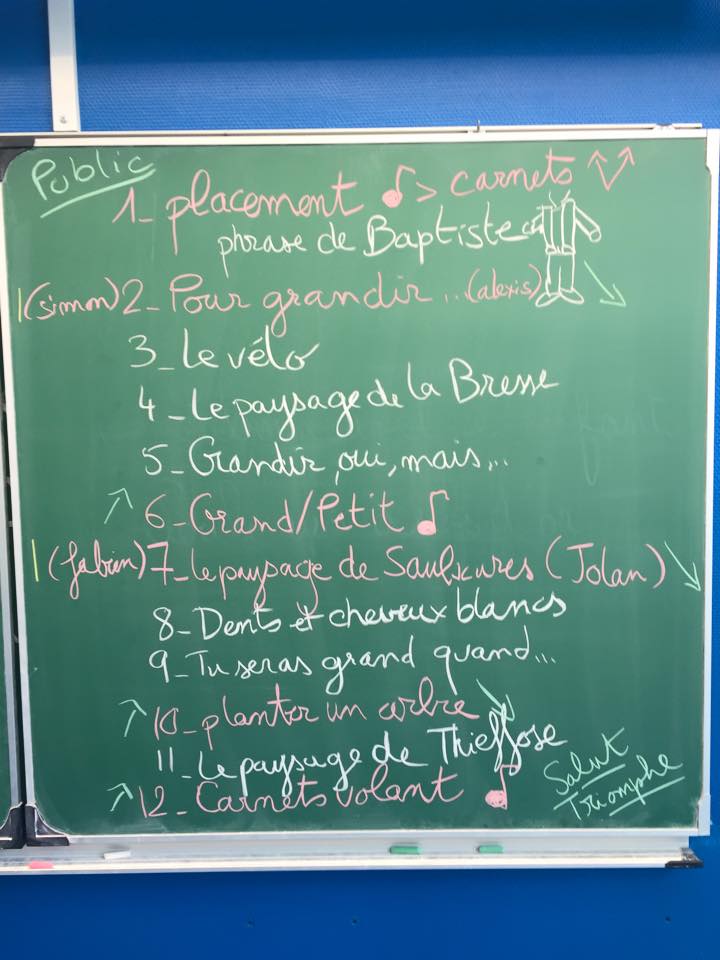 Public
1_ placement ♪ > carnets
phrase de Baptiste
(simon) 2_ Pour grandir... (alexis)
3_ Le vélo
4_ Le paysage de la Bresse
5_ Grandir, oui, mais...
6_ Grand/Petit ♪
(fabien) 7_ Le paysage de Saulxures (Jolan)
8_ Dents et cheveux blancs
9_ Tu seras grand quand...
10_ planter un arbre
11_ Le paysage de Thieffose
12_ Carnets volant ♪
Salut
Triomphe